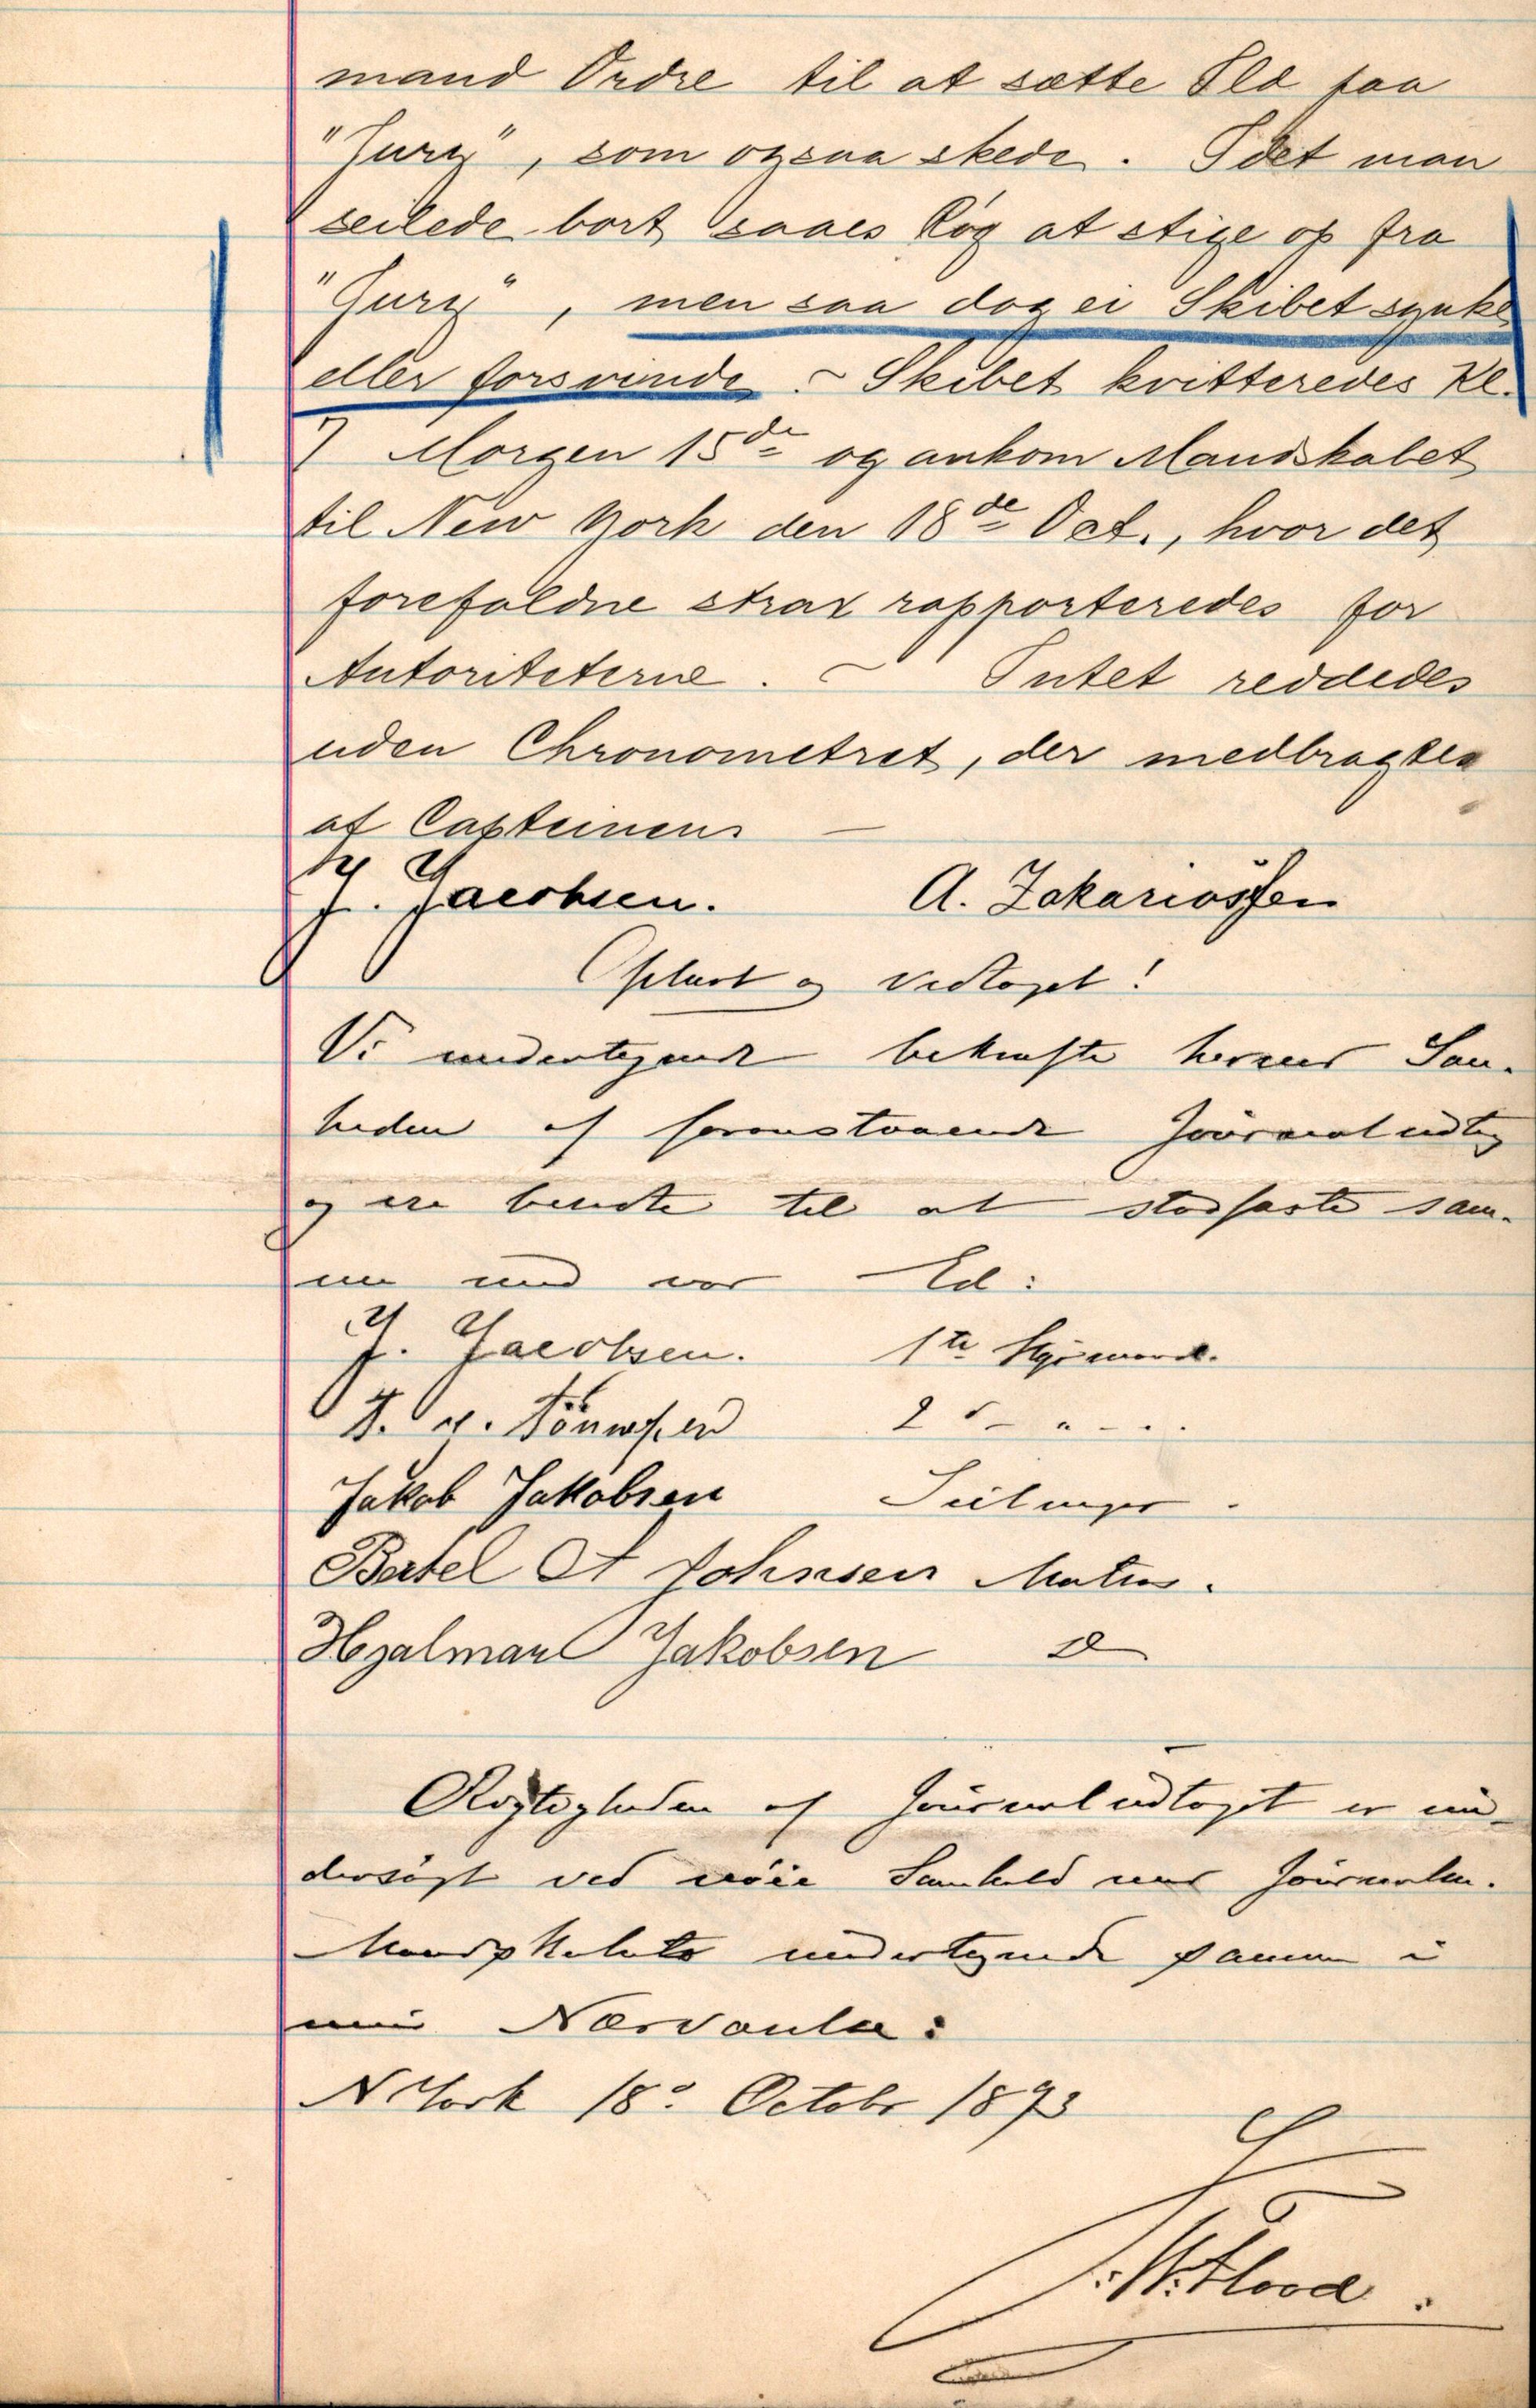 mand Ordre til at sætte Ild paa
"Jury", som ogsaa skede. Idet man
seilede bort saaes Røg at stige op fra
"Jury", men saa dog ei Skibet synke
eller forsvinde. ~ Skibet kvitteredes Kl.
7 Morgen 15de og ankom Mandskabet
til New York den 18de Oct., hvor det
forefaldne strax rapporteredes for
Autoriteterne. ~ Intet reddedes
uden Chronometret, der medbragtes
af Capteinen. —
J. Jacobsen. A. Zakariassen
Oplæst og vedtaget!
Vi undertegnede bekræfte herved San-
heden af foranstaaende Journaludtog
og ere beredte til at stadfæste sam-
me med vor Ed:
J. Jacobsen. 1te Styrmand.
T. J. Tönnessen 2d - " - .
Jakob Jakobsen Seilmager.
Bertel A Johnsen Matros.
Hjalmar Jakobsen do
Rigtigheden af Journaludtoget er un-
dersögt ved nöie Samhold med Journalen.
Mandskabet undertegnede samme i
min Nærværelse:
N York 18d October 1893
F. W. Flood.